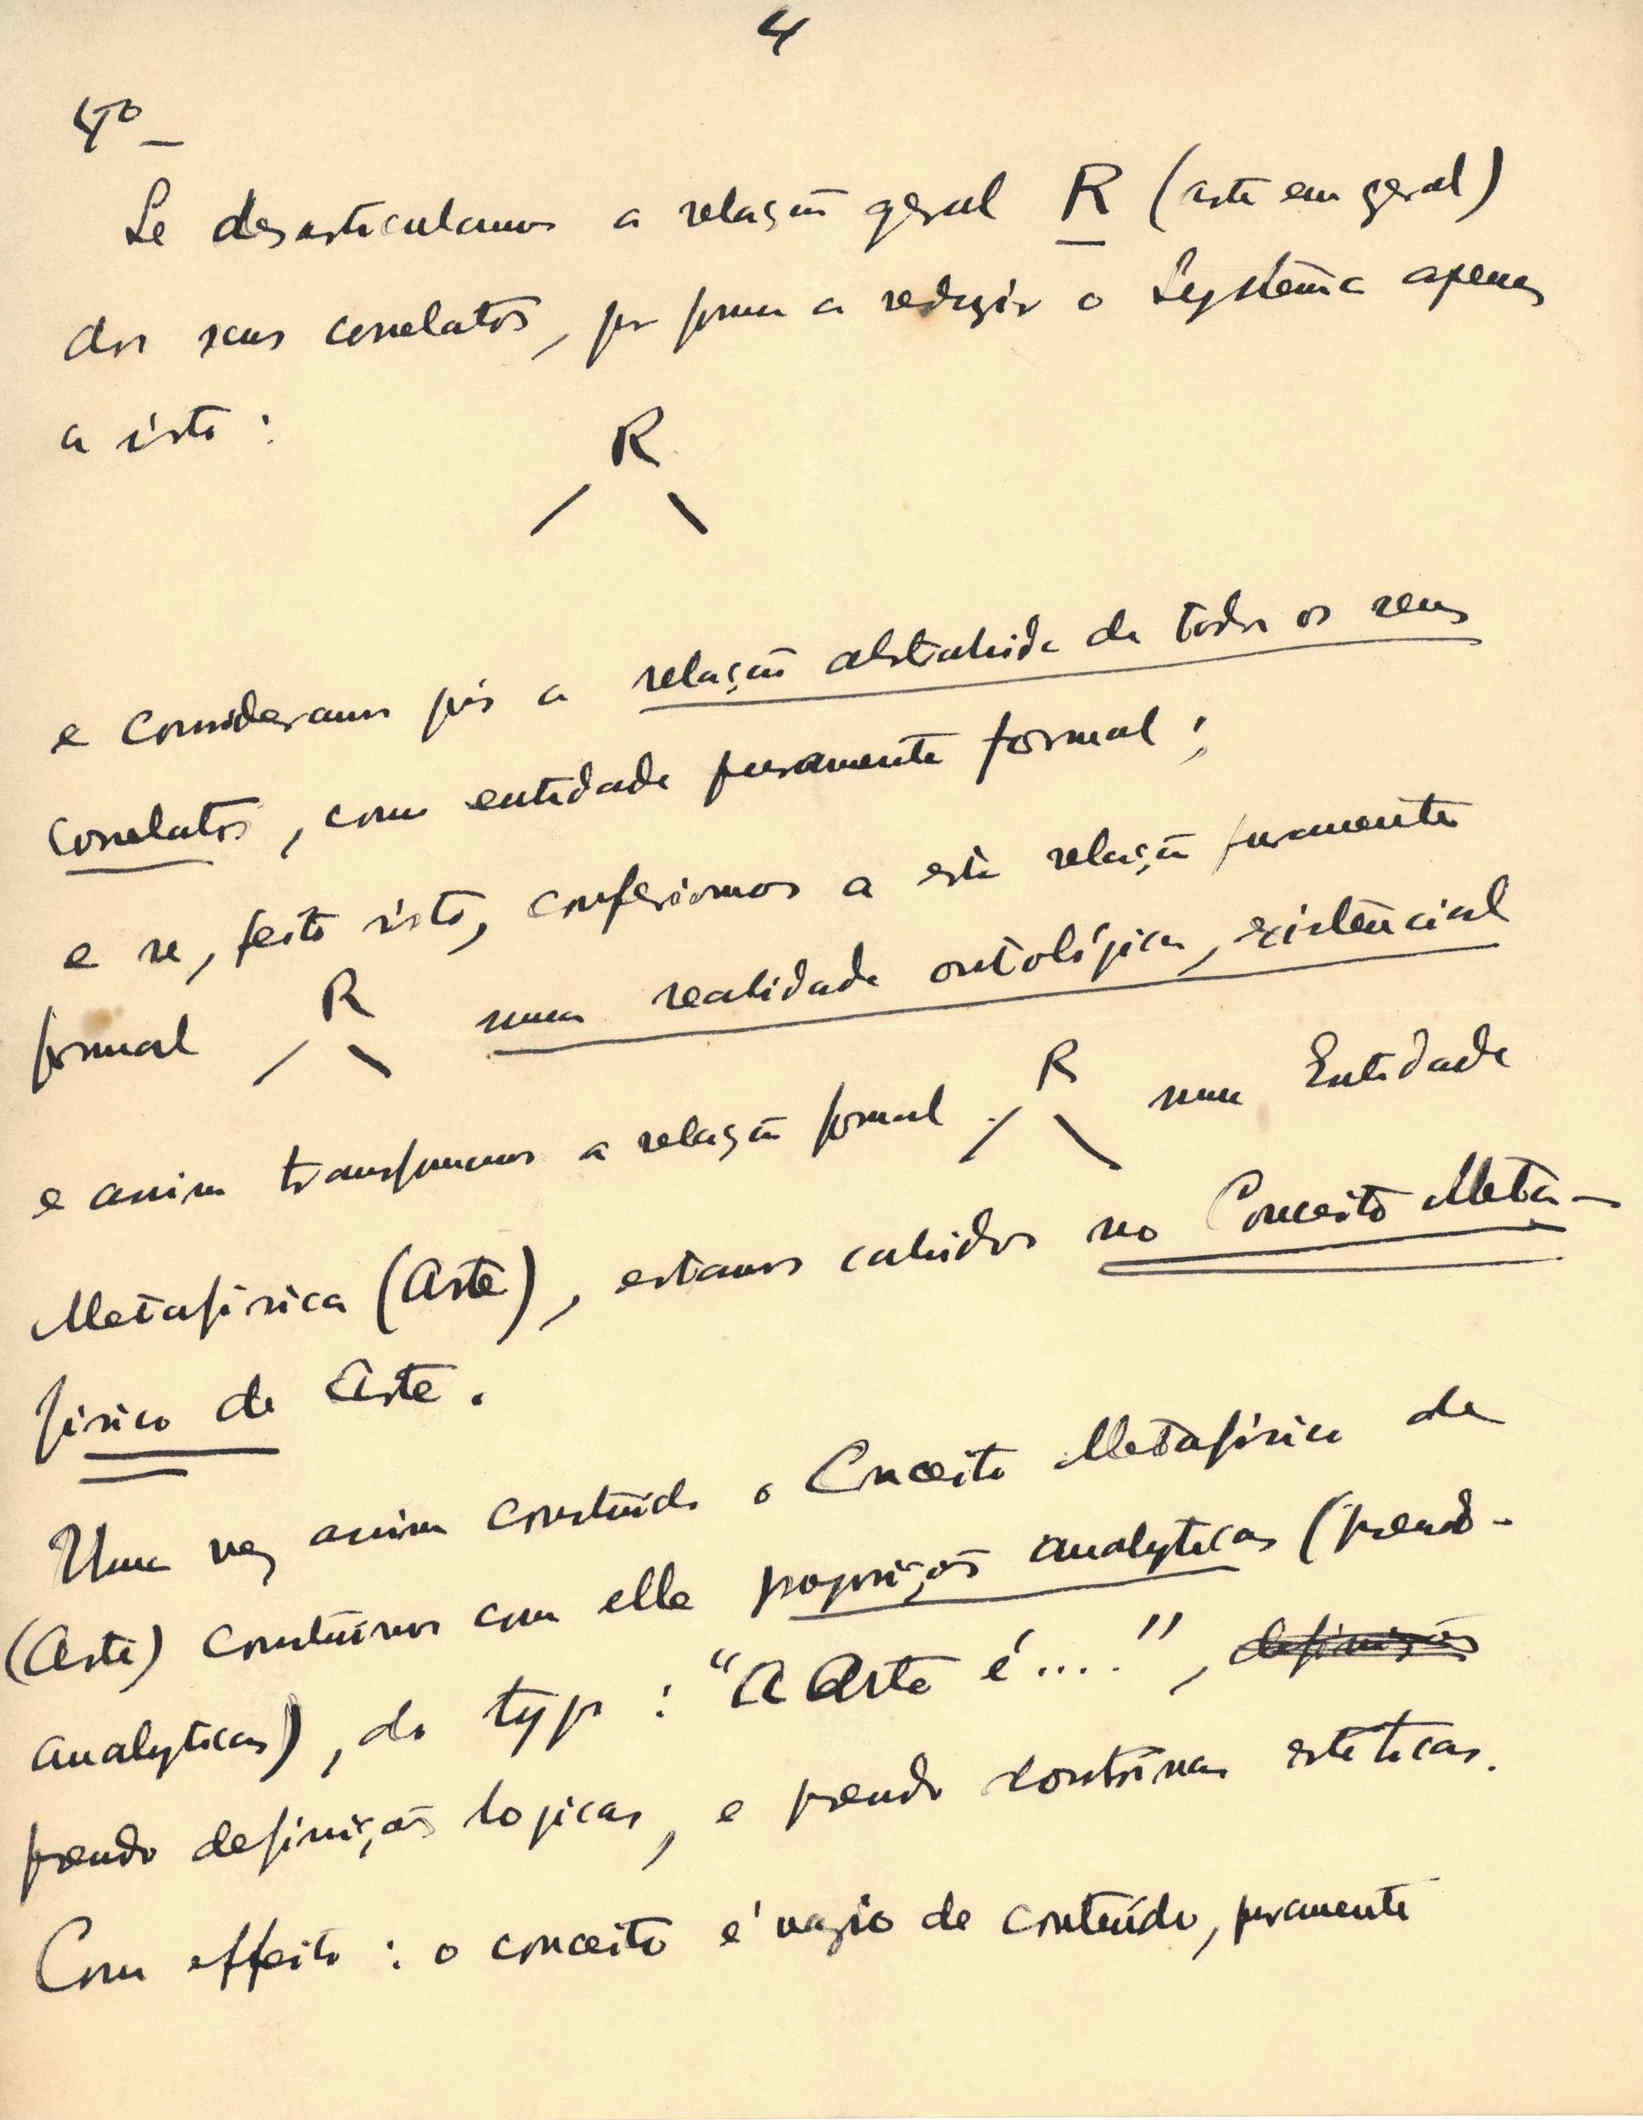 4
4º —
Se desarticulamos a relação geral R (arte em geral)
dos seus correlatos, por forma a reduzir o Systema apenas
a isto :
R
e consideramos pois a relação abstrahida de todos os seus
correlatos, como entidade puramente formal ;
e se, feito isto, conferirmos a esta relação puramente
formal R uma realidade ontológica, existencial
e assim transformamos a relação formal R numa Entidade
Metafísica (Arte), estamos cahidos no Conceito Meta-
físico de Arte.
Uma vez assim construido o Conceito Metafísico de
(Arte) construimos com elle proposições analyticas (pseudo-
analyticas), do typo : "A Arte é....", definições
pseudo definições logicas, e pseudo doutrinas estéticas.
Com effeito : o conceito é vazio de conteúdo, puramente